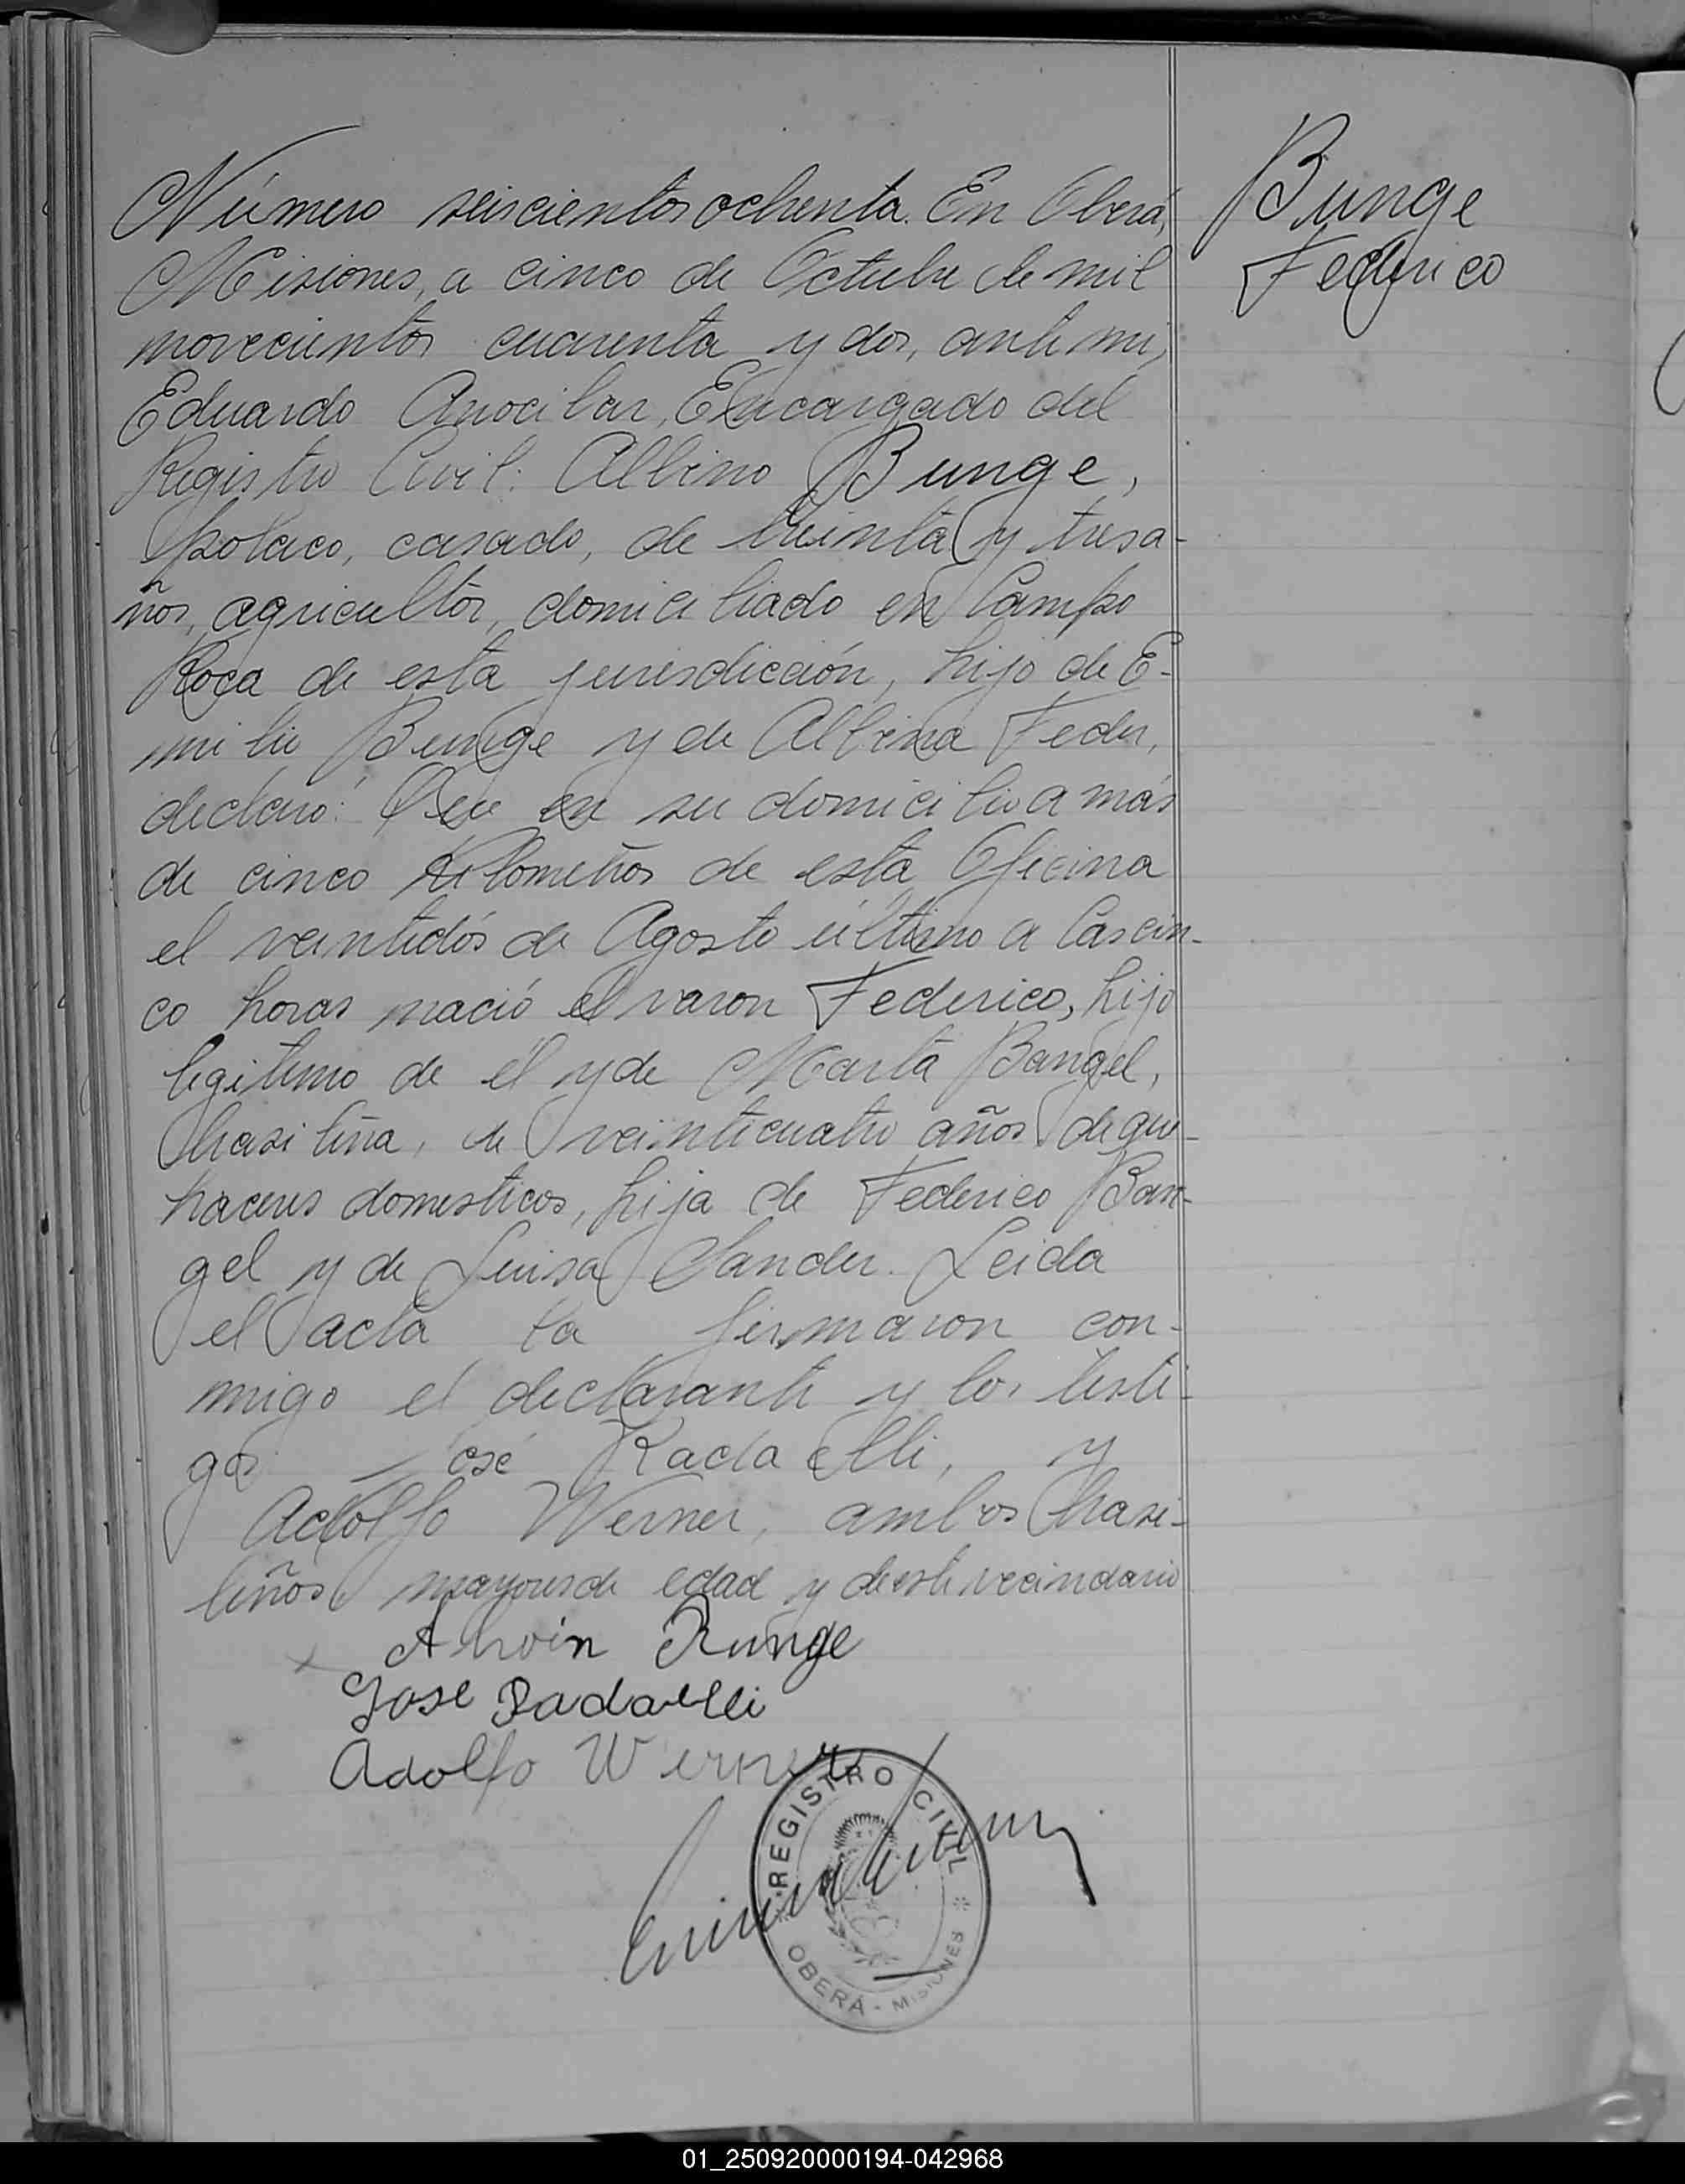 Número seiscientos ochenta. En Oberá,
Misiones, a cinco de Octubre de mil
novecientos cuarenta y dos, ante mi,
Eduardo Encargado del
Registro Civil: Albino Bunge,
polaco, casado, de treinta y tres a-
ños, agricultor, domiciliado en Campo
Roca de esta jurisdicción, hijo de E-
milio Bunge y de Albina Feder,
declaró: Que en su domicilio a más
de cinco kilometros de esta Oficina
el veintidós de Agosto último a las cin-
co horas nació el varon Federico, hijo
legitimo de él y de Marta Bangel,
brasileña, de veinticuatro años de que-
haceres domesticos, hija de Federico Ban-
gel y de Luisa Sander. Leida
el acta la firmaron con-
migo el declarante y los testi-
gos José Radaelli, y
Adolfo Werner, ambos brasi-
leños mayores de edad y de este vecindario
Bunge
Federico
Alwin Runge
José Radaelli
Adolfo Werner
REGISTRO CIVIL
OBERÁ - MISIONES
01_250920000194-042968